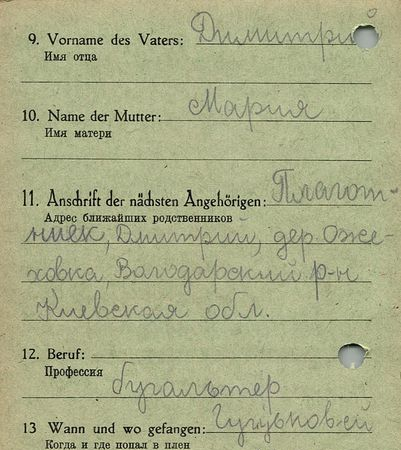 9. Vorname des Vaters: Димитрий
Имя отца
10. Name der Mutter: Мария
Имя матери
11. Anschrift der nächsten Angehörigen: Плагот-
Адрес ближайших родственников
ниек, Дмитрий, дер. Оже-
ховка, Вагодарский р-н
Киевская обл.
12. Beruf:
Профессия
бугальтер
13 Wann und wo gefangen:
Когда и где попал в плен